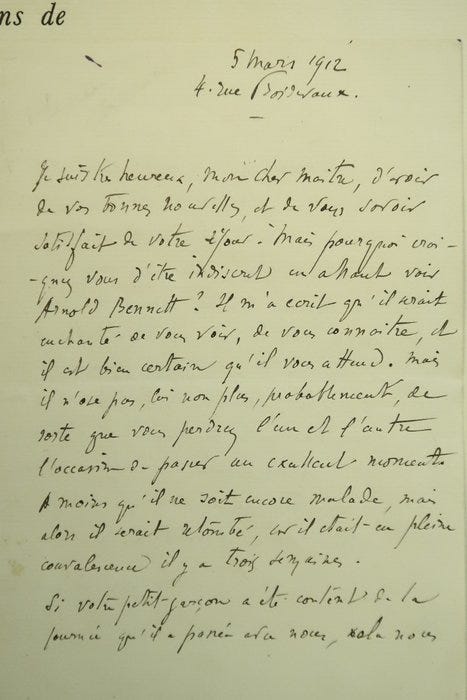 ns de
5 mars 1912
4. rue
Je suis très heureux, mon cher maître, d'avoir
de vos bonnes nouvelles, et de vous savoir
satisfait de votre séjour. Mais pourquoi crai-
-gnez vous d'être indiscret en allant voir
Arnold Bennett ? Il m'a écrit qu'il serait
enchanté de vous voir, de vous connaître, et
il est bien certain qu'il vous attend. Mais
il n'ose pas, lui non plus, probablement, de
sorte que vous perdrez l'un et l'autre
l'occasion de passer un excellent moment.
A moins qu'il ne soit encore malade, mais
alors il serait retombé, car il était en pleine
convalescence il y a trois semaines.
Si votre petit garçon a été content de la
journée qu'il a passée avec nous, cela nous